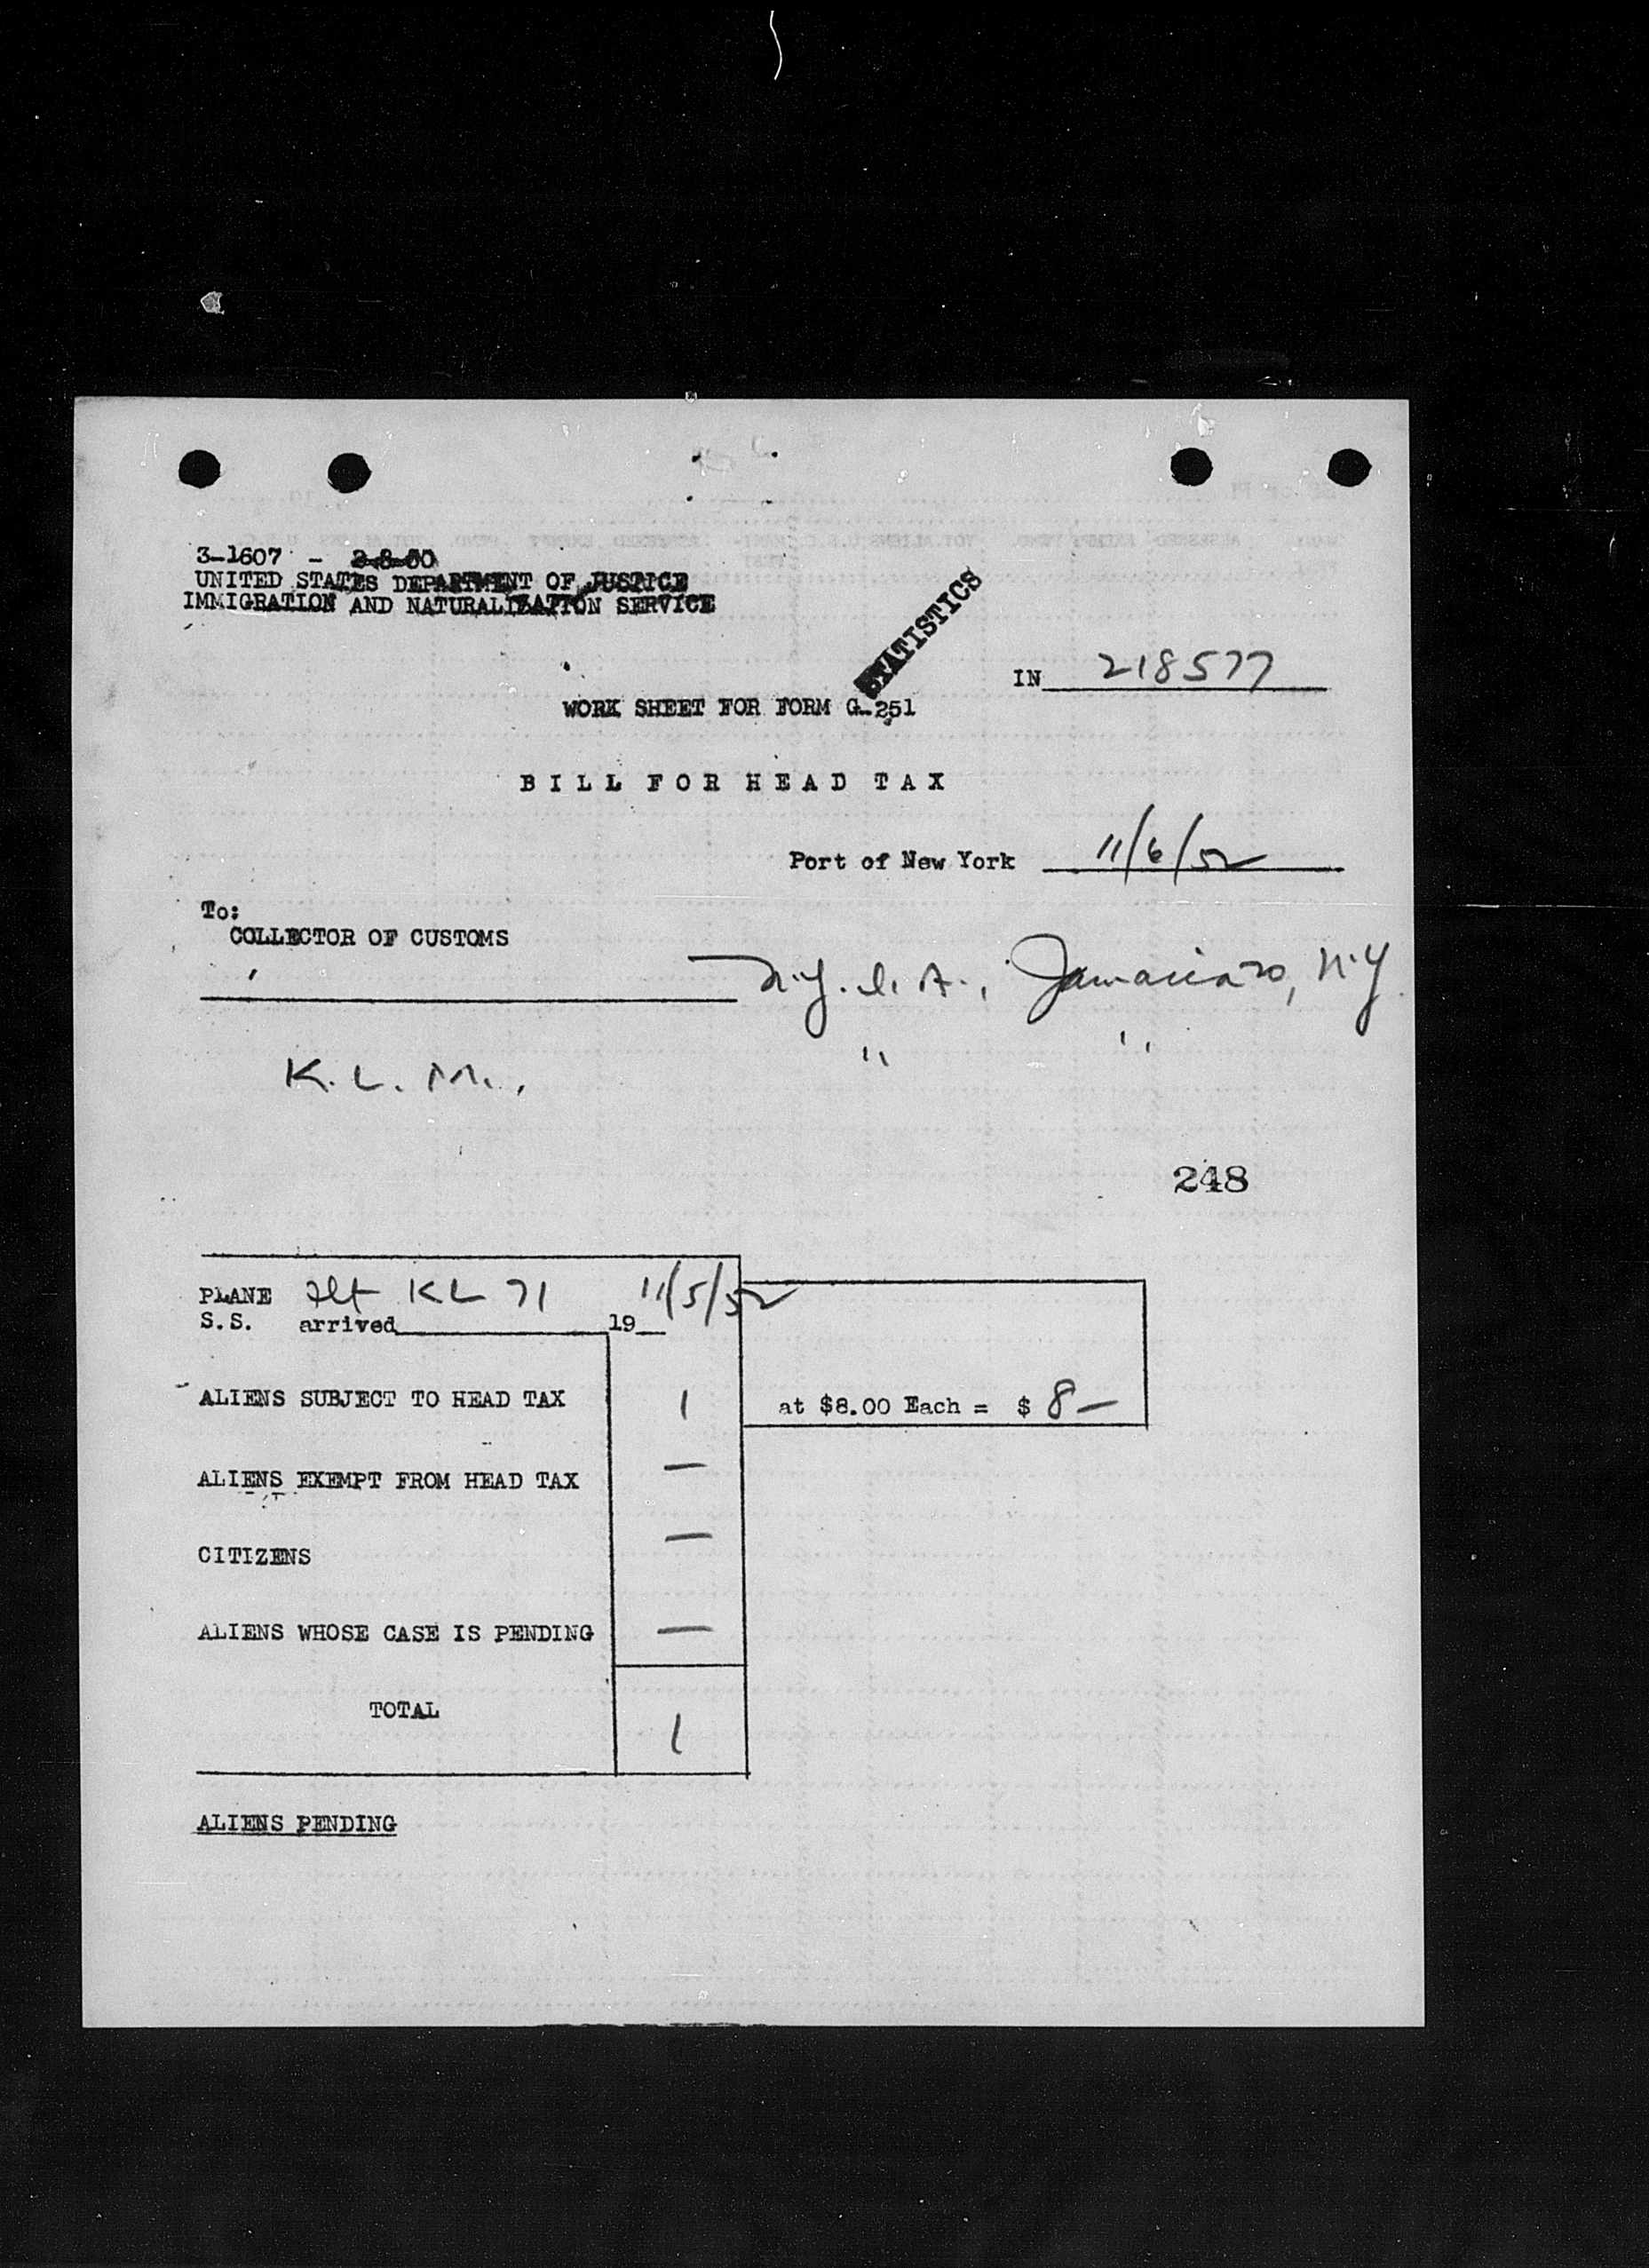 3-1607 -
UNITED STATES DEPARTMENT OF JUSTICE
IMMIGRATION AND NATURALIZATION SERVICE
STATISTICS
IN 218577
WORK SHEET FOR FORM G-251
BILL FOR HEAD TAX
Port of New York 11/6/52
To:
COLLECTOR OF CUSTOMS
N.Y. I. A., Jamaica 30, N.Y.
K.L.M., " "
248
PLANE Flt KL 71 11/5/52
S.S. arrived 19
ALIENS SUBJECT TO HEAD TAX 1 at $8.00 Each = $ 8 —
ALIENS EXEMPT FROM HEAD TAX —
CITIZENS —
ALIENS WHOSE CASE IS PENDING —
TOTAL 1
ALIENS PENDING